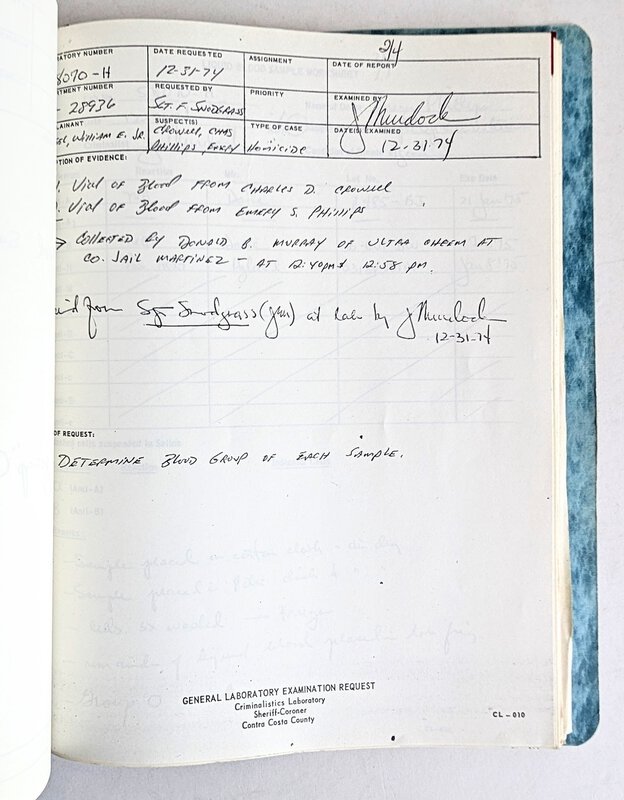 2/4
ATORY NUMBER DATE REQUESTED ASSIGNMENT DATE OF REPORT
8070-H 12-31-74
RTMENT NUMBER REQUESTED BY PRIORITY EXAMINED BY
- 28936 SGT. F. SNODGRASS J Murdock
LAINANT SUSPECT(S) TYPE OF CASE DATE(S) EXAMINED
WILLIAM E. JR. CROWELL, CHAS PHILLIPS, EMERY HOMICIDE 12-31-74
TION OF EVIDENCE:
1. VIAL OF BLOOD FROM CHARLES D. CROWELL
2. VIAL OF BLOOD FROM EMERY S. PHILLIPS
→ COLLECTED BY DONALD B. MURRAY OF ULTRA CHEEM AT
CO. JAIL MARTINEZ - AT 12:40PM & 12:58 PM.
from Sgt Snodgrass (jm) at lab by J Murdock
12-31-74
OF REQUEST:
DETERMINE BLOOD GROUP OF EACH SAMPLE.
GENERAL LABORATORY EXAMINATION REQUEST
Criminalistics Laboratory
Sheriff-Coroner
Contra Costa County
CL-010